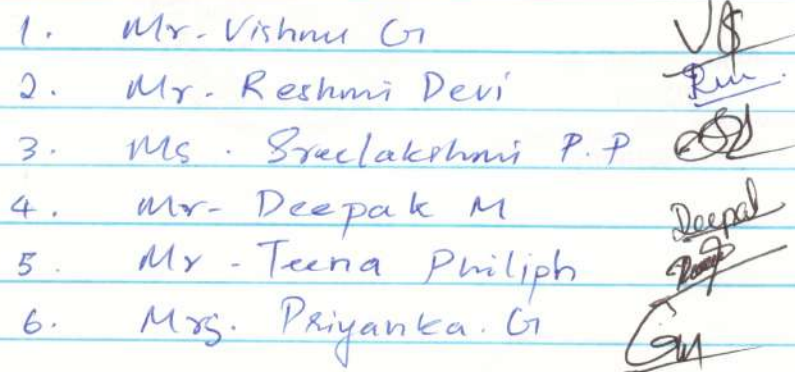 1. Mr. Vishnu G
2. Mr. Reshmi Devi
3. Ms. Sreelakshmi P.P
4. Mr. Deepak M Deepak
5. Mr. Teena Philiph
6. Mrs. Priyanka. G